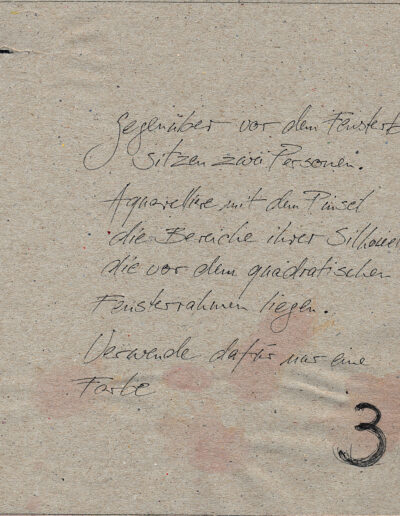 gegenüber vor dem Fenster
sitzen zwei Personen.
Aquarelliere mit dem Pinsel
die Bereiche ihrer Silhouet
die vor dem quadratischen
Fensterrahmen liegen.
Verwende dafür nur eine
Farbe
3